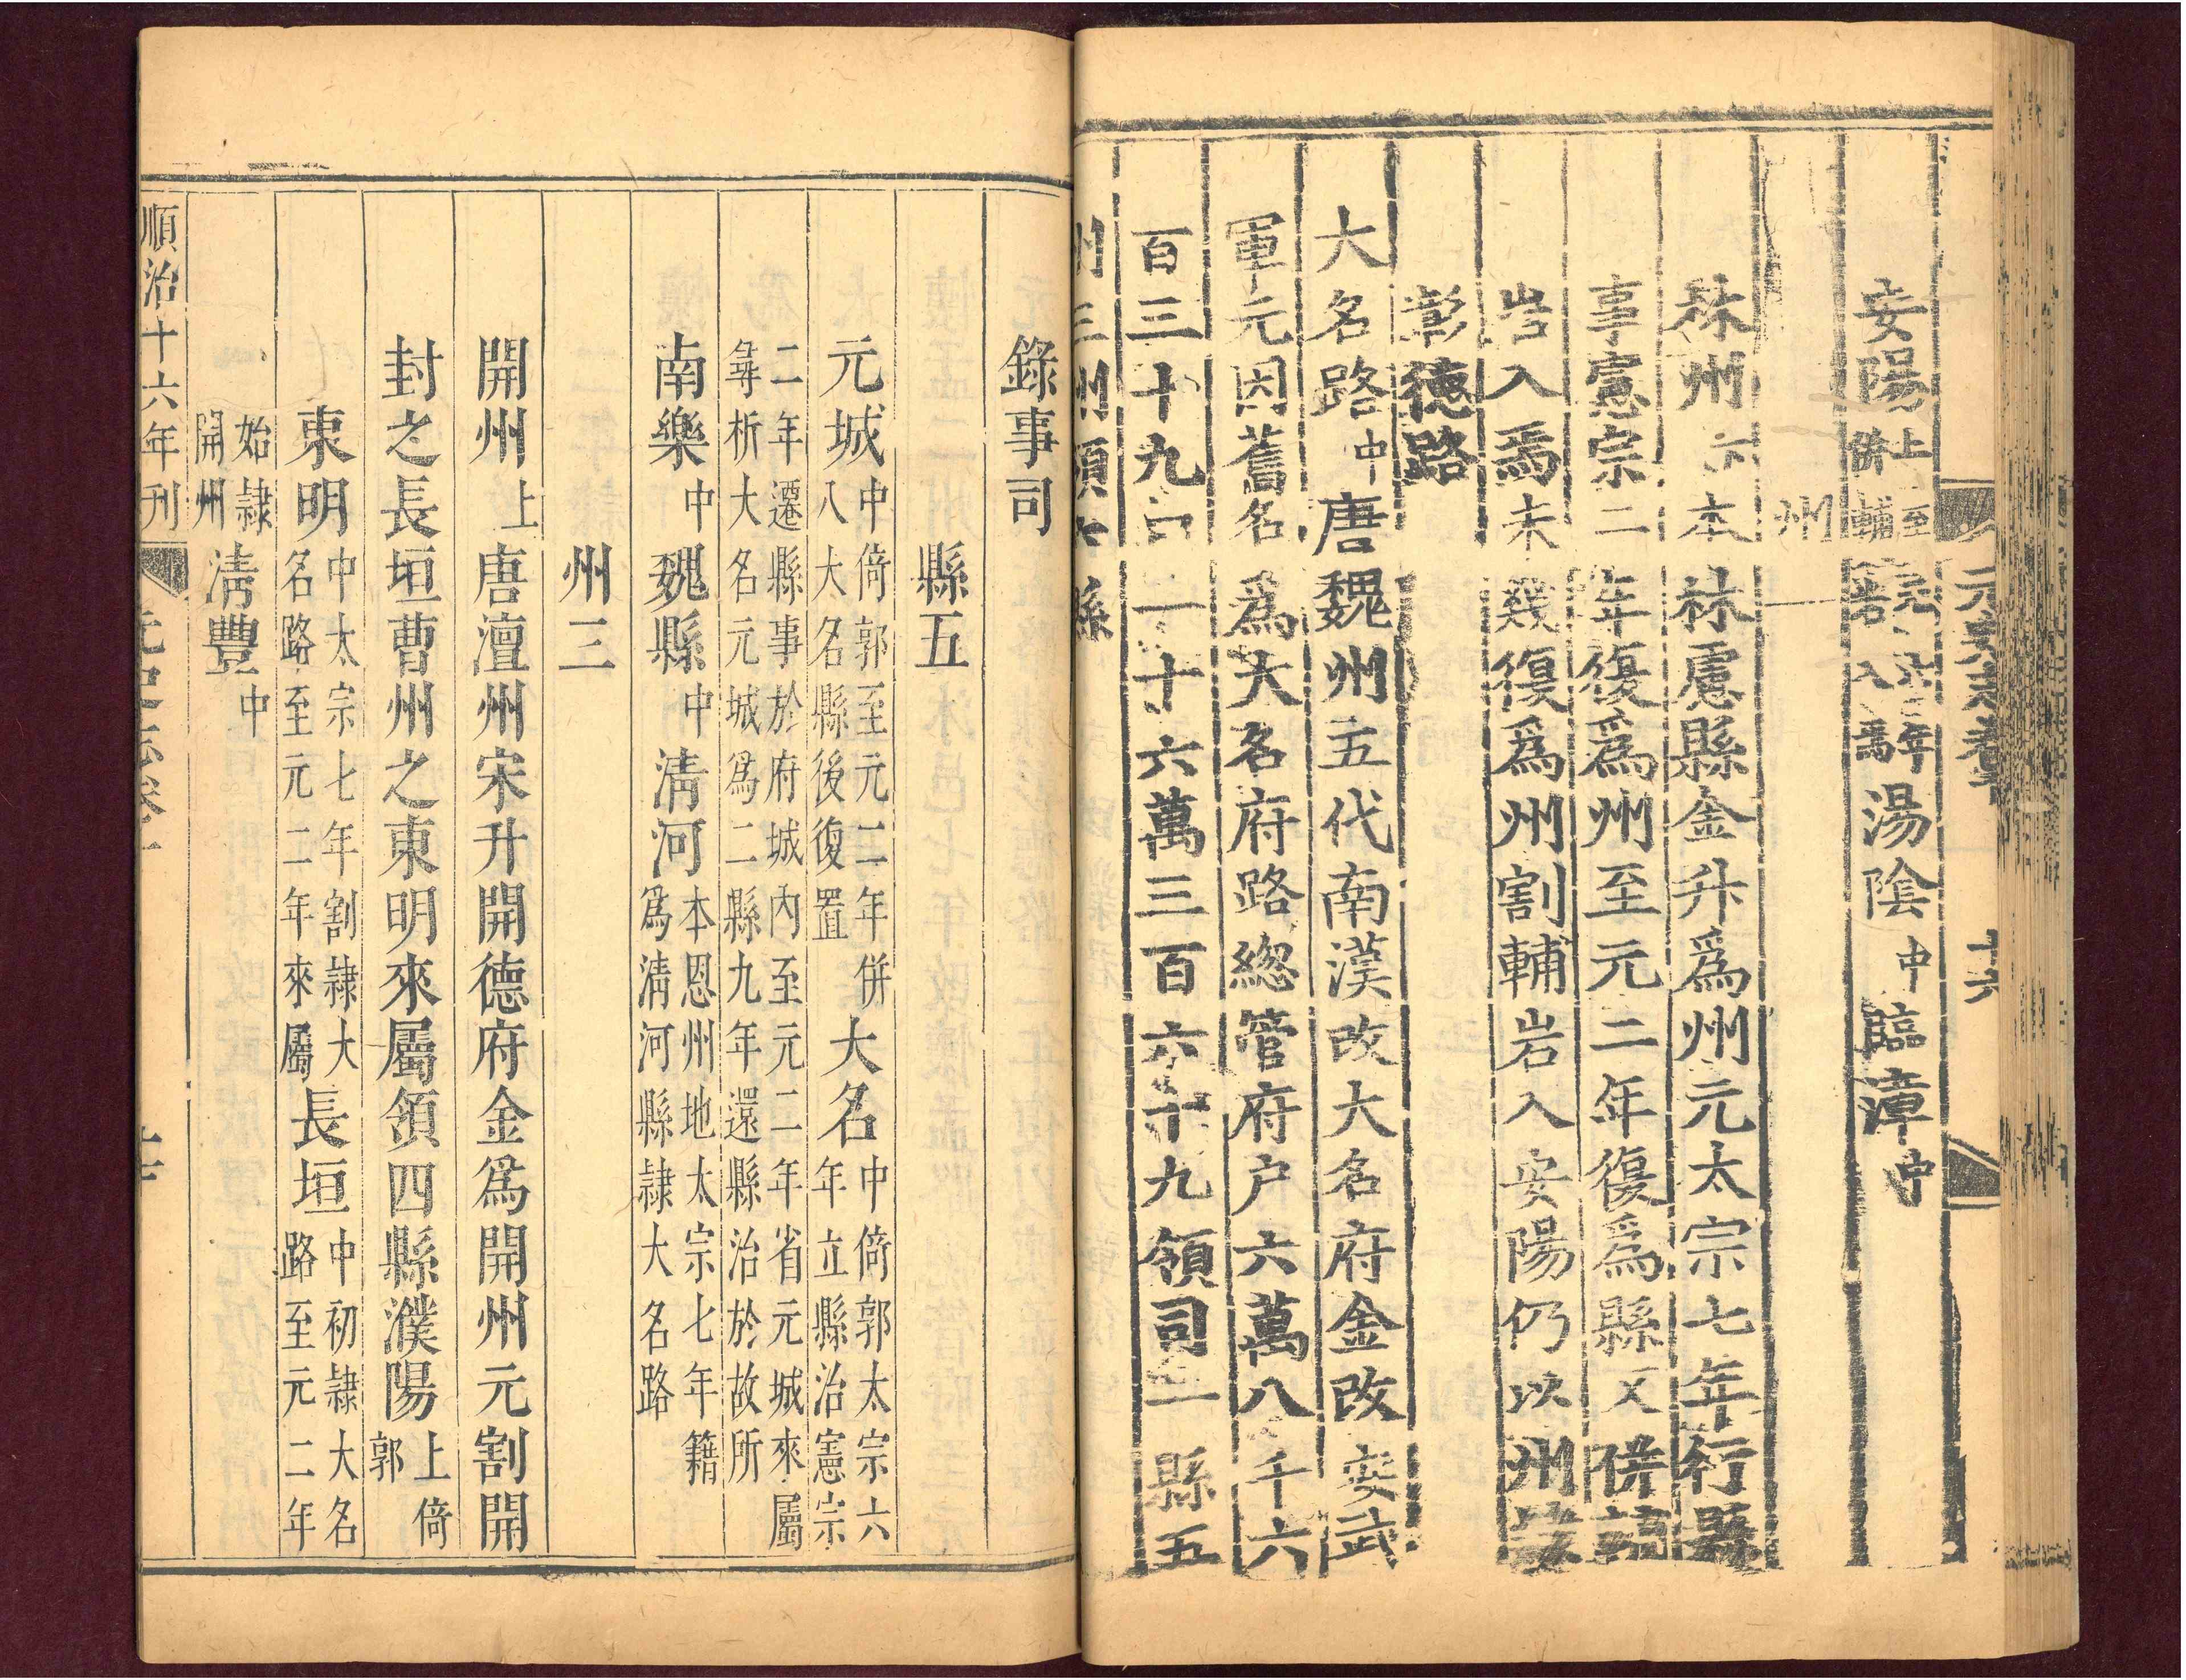 安陽上至元四年併輔岩入焉湯陰中臨漳中
州
林州下本林慮縣金升爲州元太宗七年行縣
事憲宗二年復爲州至元二年復爲縣又併
岩入焉未幾復爲州割輔岩入安陽仍以州
彰德路
大名路中唐魏州五代南漢改大名府金改安武
軍元因舊名爲大名府路總管府户六萬八千六
百三十九口一十六萬三百六十九領司一縣五
州三州領 縣
錄事司
縣五
元城中倚郭至元二年併入大名縣後復置大名中倚郭太宗六年立縣治憲宗
二年遷縣事於府城內至元二年省元城來屬尋析大名元城爲二縣九年還縣治於故所
南樂中魏縣中清河本恩州地太宗七年籍爲清河縣隸大名路
州三
開州上唐澶州宋升開德府金爲開州元割開
封之長垣曹州之東明來屬領四縣濮陽上倚郭
東明中太宗七年割隸大名路至元二年來屬長垣中初隸大名路至元二年
始隸開州清豐中
順治十六年刊